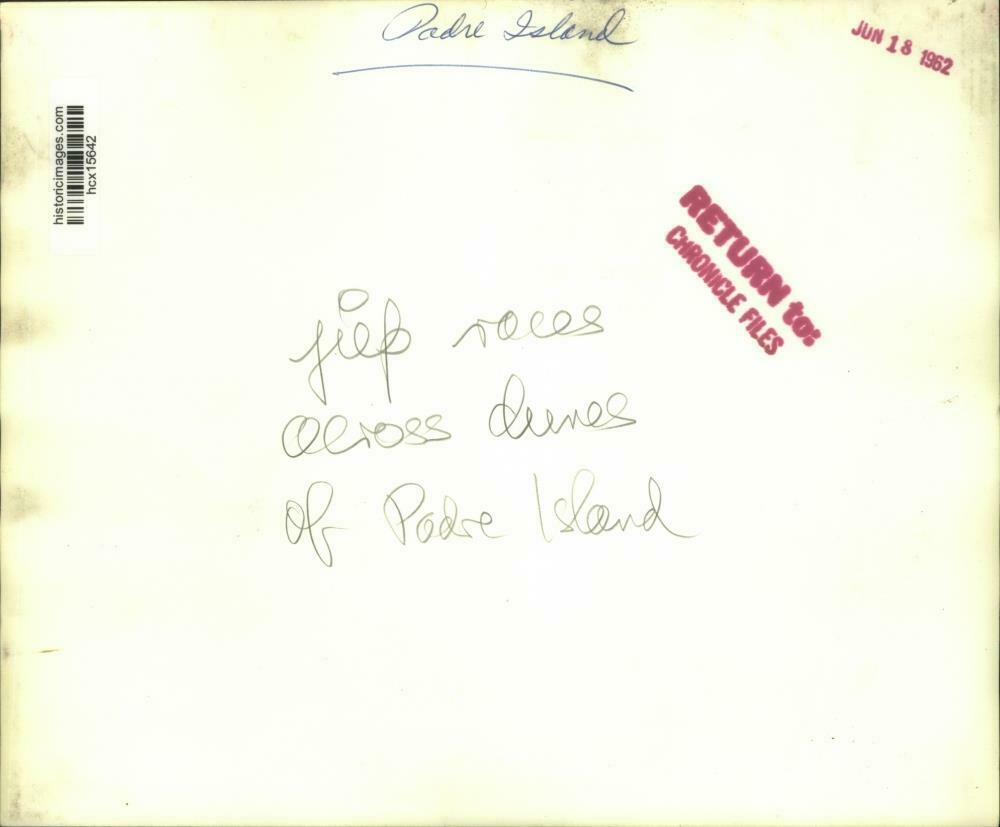 Padre Island
JUN 18 1962
historicimages.com
hcx15642
RETURN to:
CHRONICLE FILES
jeep races
across dunes
of Padre Island